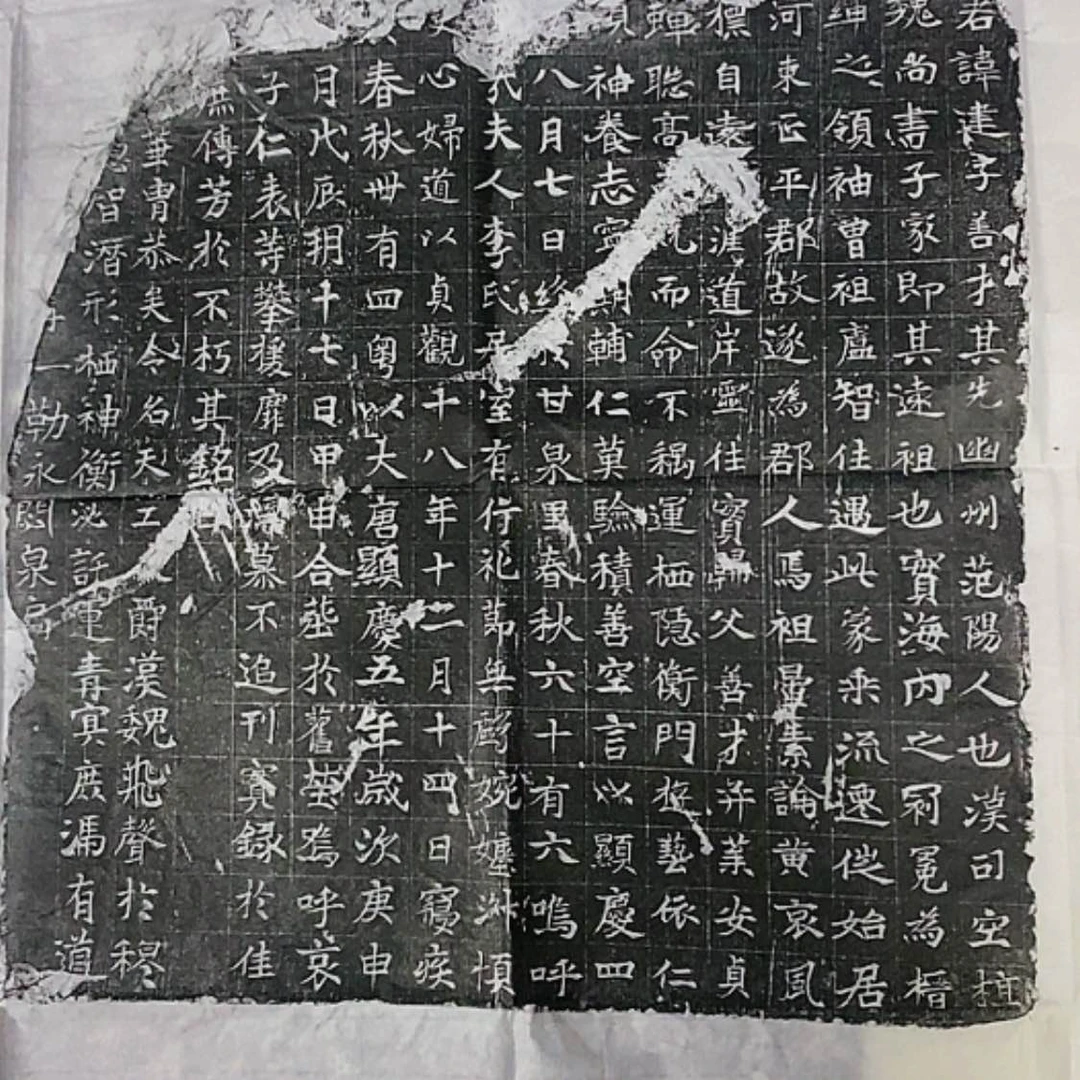 君諱建字善才其先幽州范陽人也漢司空植
魏尚書子家即其遠祖也實海内之冠冕為搢
紳之領袖曽祖盧智住遇此蒙乖流遷徙始居
河東正平郡故遂為郡人焉祖曇素論黄裒風
標自遠涯道岸靈住寳歸父善才并業安貞
蟬聡高九而命不稱運栖隠衡門遊藝依仁
神養志寧期輔仁莫驗積善空言以顯慶四
八月七日終於甘泉里春秋六十有六嗚呼
夫人李氏居室有行礼莭無虧婉嬺淋慎
心婦道以貞觀十八年十二月十四日寢疾
春秋丗有四粤以大唐顯慶五年歳次庚申
月戊辰朔十七日甲申合塟於舊塋嗚呼哀
子仁表等攀援靡及孺慕不追刊寘録於佳
庶傳芳於不朽其銘曰
華胄恭矣令名天工爵漢魏飛聲於穆
智潛形栖神衡泌託運青㝠庶馮有道
一勒永閟泉扃